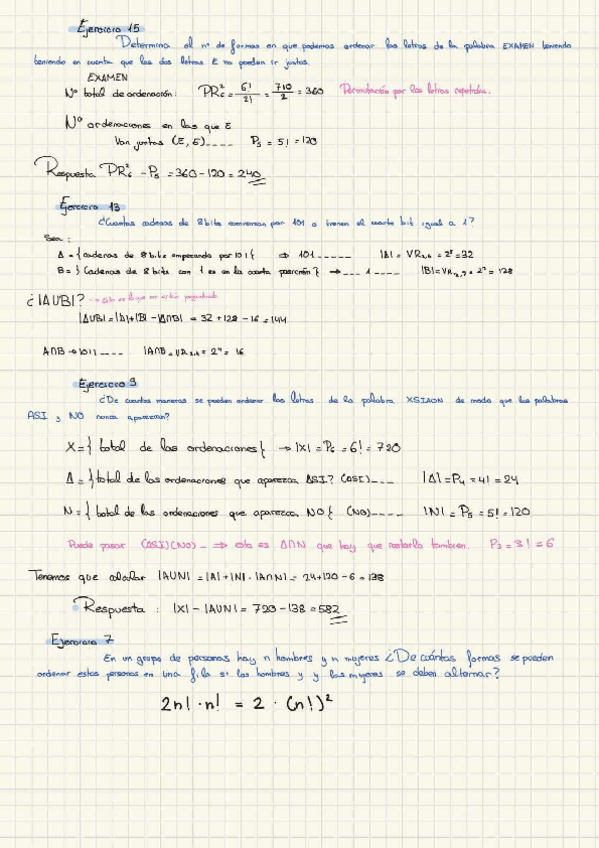 Ejercicio 15
Determina el nº de formas en que podemos ordenar las letras de la palabra EXAMEN teniendo
teniendo en cuenta que las dos letras E no pueden ir juntas.
EXAMEN
Nº total de ordenación: PR₆² = 6!/2! = 710/2 = 360 Permutación por las letras repetidas.
Nº ordenaciones en las que E
Van juntas (E,E)____ P₅ = 5! = 120
Respuesta PR₆² - P₅ = 360 - 120 = 240
Ejercicio 13
¿Cuantas cadenas de 8 bits comienzan por 101 o tienen el cuarto bit igual a 1?
Sea:
A = {cadenas de 8 bits empezando por 101} ⇒ 101 _____ |A| = VR₂,₅ = 2⁵ = 32
B = {Cadenas de 8 bits con 1 es en la cuarta posición} → ___ 1 ____ |B| = VR₂,₇ = 2⁷ = 128
¿|AUB|? → Esto es lo que me están preguntando
|AUB| = |A| + |B| - |A∩B| = 32 + 128 - 16 = 144
A∩B → 1011 ____ |A∩B| = VR₂,₄ = 2⁴ = 16
Ejercicio 9
¿De cuantas maneras se pueden ordenar las letras de la palabra XSIAON de modo que las palabras
ASI y NO nunca aparezcan?
X = {total de las ordenaciones} → |X| = P₆ = 6! = 720
A = {total de las ordenaciones que aparezca ASI} (ASI)___ |A| = P₄ = 4! = 24
N = {total de las ordenaciones que aparezca NO} (NO)____ |N| = P₅ = 5! = 120
Puede pasar (ASI)(NO)_ ⇒ esta es A∩N que hay que restarla tambien. P₃ = 3! = 6
Tenemos que calcular |AUN| = |A| + |N| - |A∩N| = 24 + 120 - 6 = 138
Respuesta: |X| - |AUN| = 720 - 138 = 582
Ejercicio 7
En un grupo de personas hay n hombres y n mujeres ¿De cuántas formas se pueden
ordenar estas personas en una fila si los hombres y y las mujeres se deben alternar?
2n! · n! = 2 · (n!)²